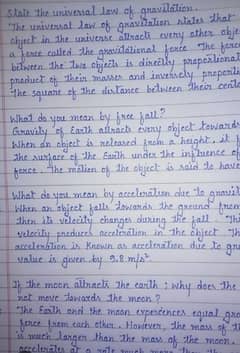 State the universal law of gravitation.
"The universal law of gravitation states that
object in the universe attracts every other obje
a force called the gravitational force. The forc
between the two objects is directly proportional
product of their masses and inversely proporti
the square of the distance between their cent
What do you mean by free fall?
Gravity of Earth attracts every object toward
When an object is released from a height, it f
the surface of the Earth under the influence o
force. The motion of the object is said to have
What do you mean by acceleration due to gravit
When an object falls towards the ground from
then its velocity changes during the fall. Th
velocity produces acceleration in the object. Th
acceleration is known as acceleration due to gra
value is given by 9.8 m/s²
If the moon attracts the earth; why does the
not move towards the moon?
The Earth and the moon experiences equal gra
force from each other. However, the mass of th
is much larger than the mass of the moon.
accelerates at a rate much more than the